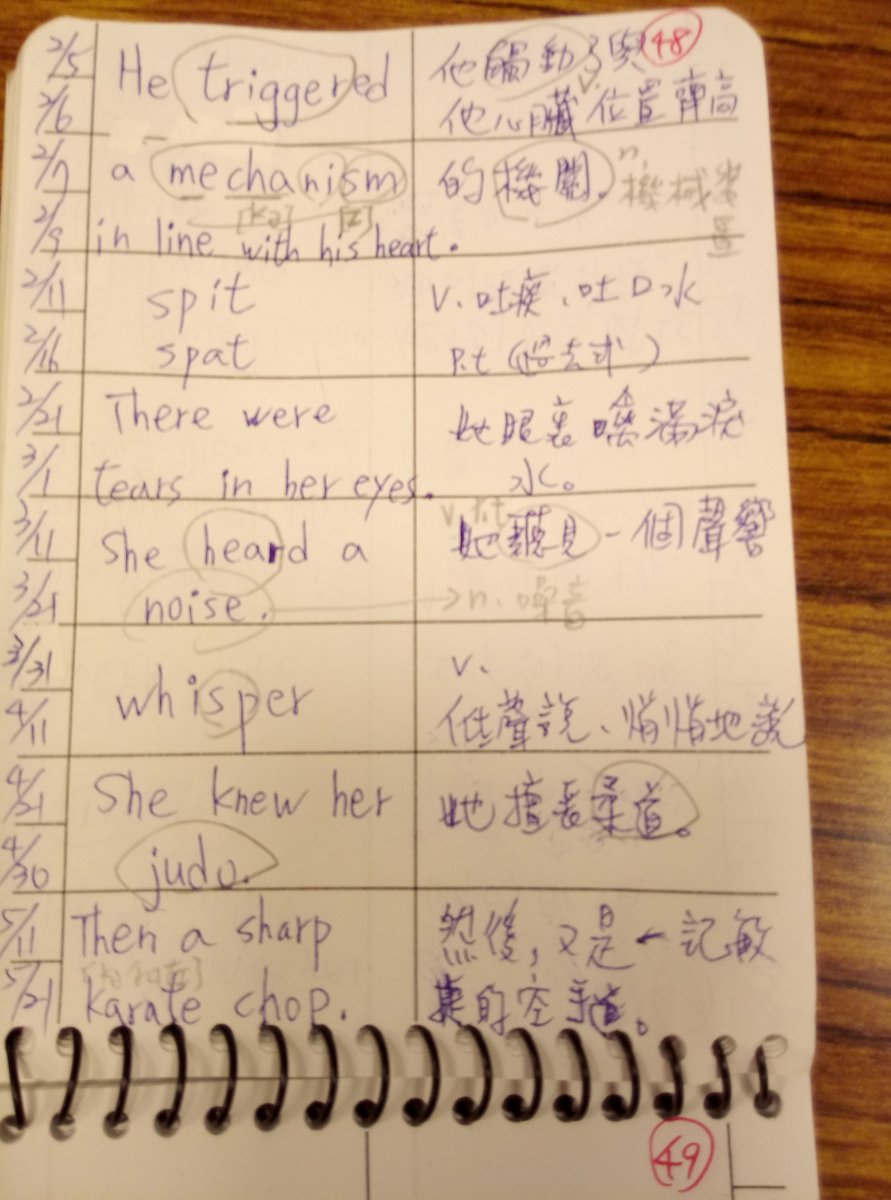 48
2/5
He triggered
他觸動了與
2/6
他心臟位置齊高
2/7
a mechanism
的機關。
n.
機械裝
置
[kə] [z]
2/9
in line with his heart.
2/11
spit
v. 吐痰、吐口水
2/16
spat
p.t (過去式)
2/21
There were
她眼裏噙滿淚
3/1
tears in her eyes.
水。
3/11
She heard a
v. p.t
她聽見一個聲響
3/21
noise.
→n. 噪音
3/31
whisper
v.
4/11
低聲說、悄悄地說
4/21
She knew her
她擅長柔道。
4/30
judo.
5/11
Then a sharp
然後,又是一記敏
5/21
karate chop.
的空手道。
49